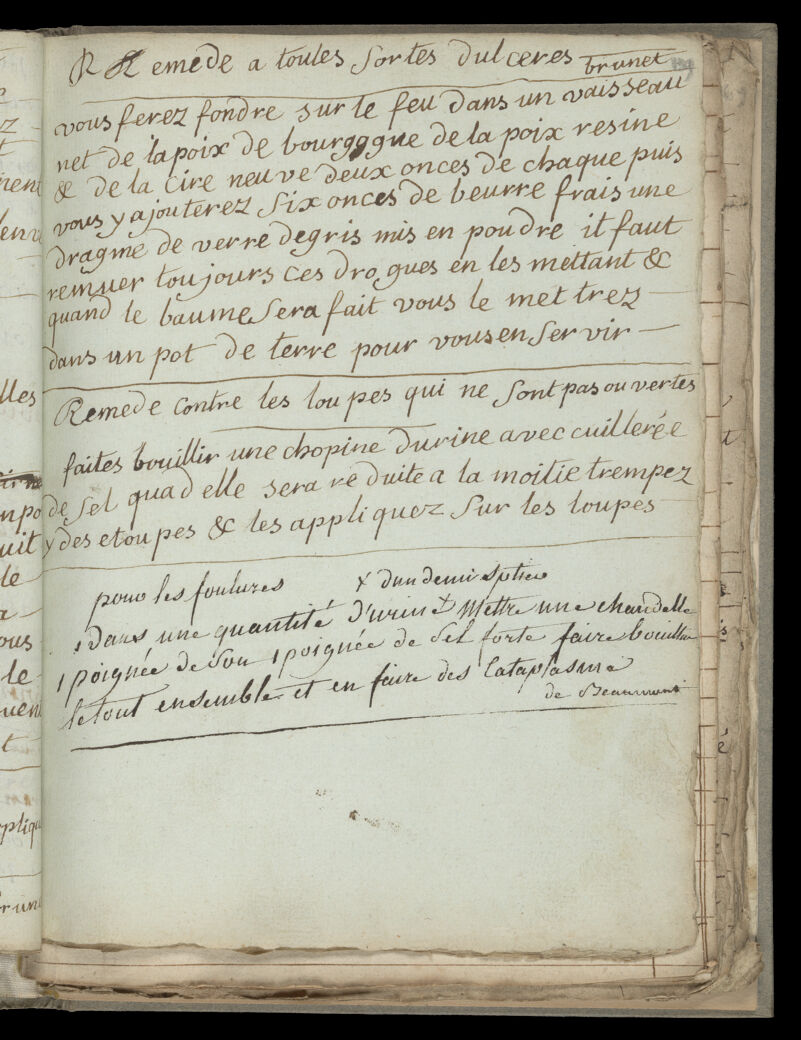 R Remede a toutes sortes dulceres brunet
vous ferez fondre sur le feu dans un vaisseau
net de lapoix de bourgogne de la poix resine
& de la cire neuve deux onces de chaque puis
vous y ajouterez six onces de beurre frais une
dragme de verre degris mis en poudre il faut
remuer toujours ces drogues en les mettant &
quand le baume sera fait vous le mettrez
dans un pot de terre pour vous en servir
Remede contre les loupes qui ne sont pas ouvertes
faites bouillir une chopine durine avec cuillerée
de sel quad elle sera reduite a la moitie trempez
y des etoupes & les appliquez sur les loupes
pour les foulures x dun demi sptier
dans une quantité d'urine x mettre une chandelle
1 poignée de son 1 poignée de sel forte faire bouillir
le tout ensemble et en faire des Cataplasme
de Beaumont